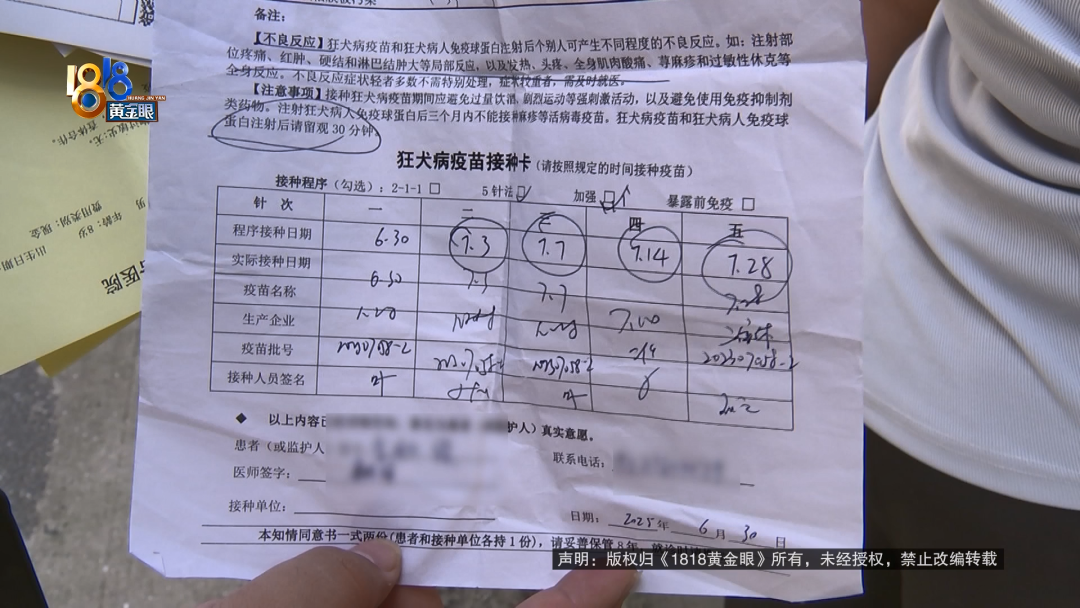 备注：
【不良反应】狂犬病疫苗和狂犬病人免疫球蛋白注射后个别人可产生不同程度的不良反应。如：注射部
位疼痛、红肿、硬结和淋巴结肿大等局部反应，以及发热、头疼、全身肌肉酸痛、荨麻疹和过敏性休克等
全身反应。不良反应症状轻者多数不需特别处理，症状较重者，需及时就医。
【注意事项】接种狂犬病疫苗期间应避免过量饮酒、剧烈运动等强刺激活动，以及避免使用免疫抑制剂
类药物。注射狂犬病人免疫球蛋白后三个月内不能接种麻疹等活病毒疫苗。狂犬病疫苗和狂犬病人免疫球
蛋白注射后请留观30分钟。
狂犬病疫苗接种卡（请按照规定的时间接种疫苗）
接种程序（勾选）：2-1-1 □ 5针法 □ 加强 □ 暴露前免疫 □
针 次 一 二 三 四 五
程序接种日期 6.30 7.3 7.7 7.14 7.28
实际接种日期 6.30 7.3 7.7 7.28
疫苗名称
生产企业
疫苗批号 202307058-2
接种人员签名
◆ 以上内容 护人）真实意愿。
患者（或监护人
联系电话：
医师签字：
接种单位：
日期： 2025年 6月 30日
本知情同意书一式两份（患者和接种单位各持1份），请妥善保管8年
1818
HUANG JIN YAN
黄金眼
查体合作。
费用类别：现金
男 年龄：8岁
出生日期：
医院
声明：版权归《1818黄金眼》所有，未经授权，禁止改编转载